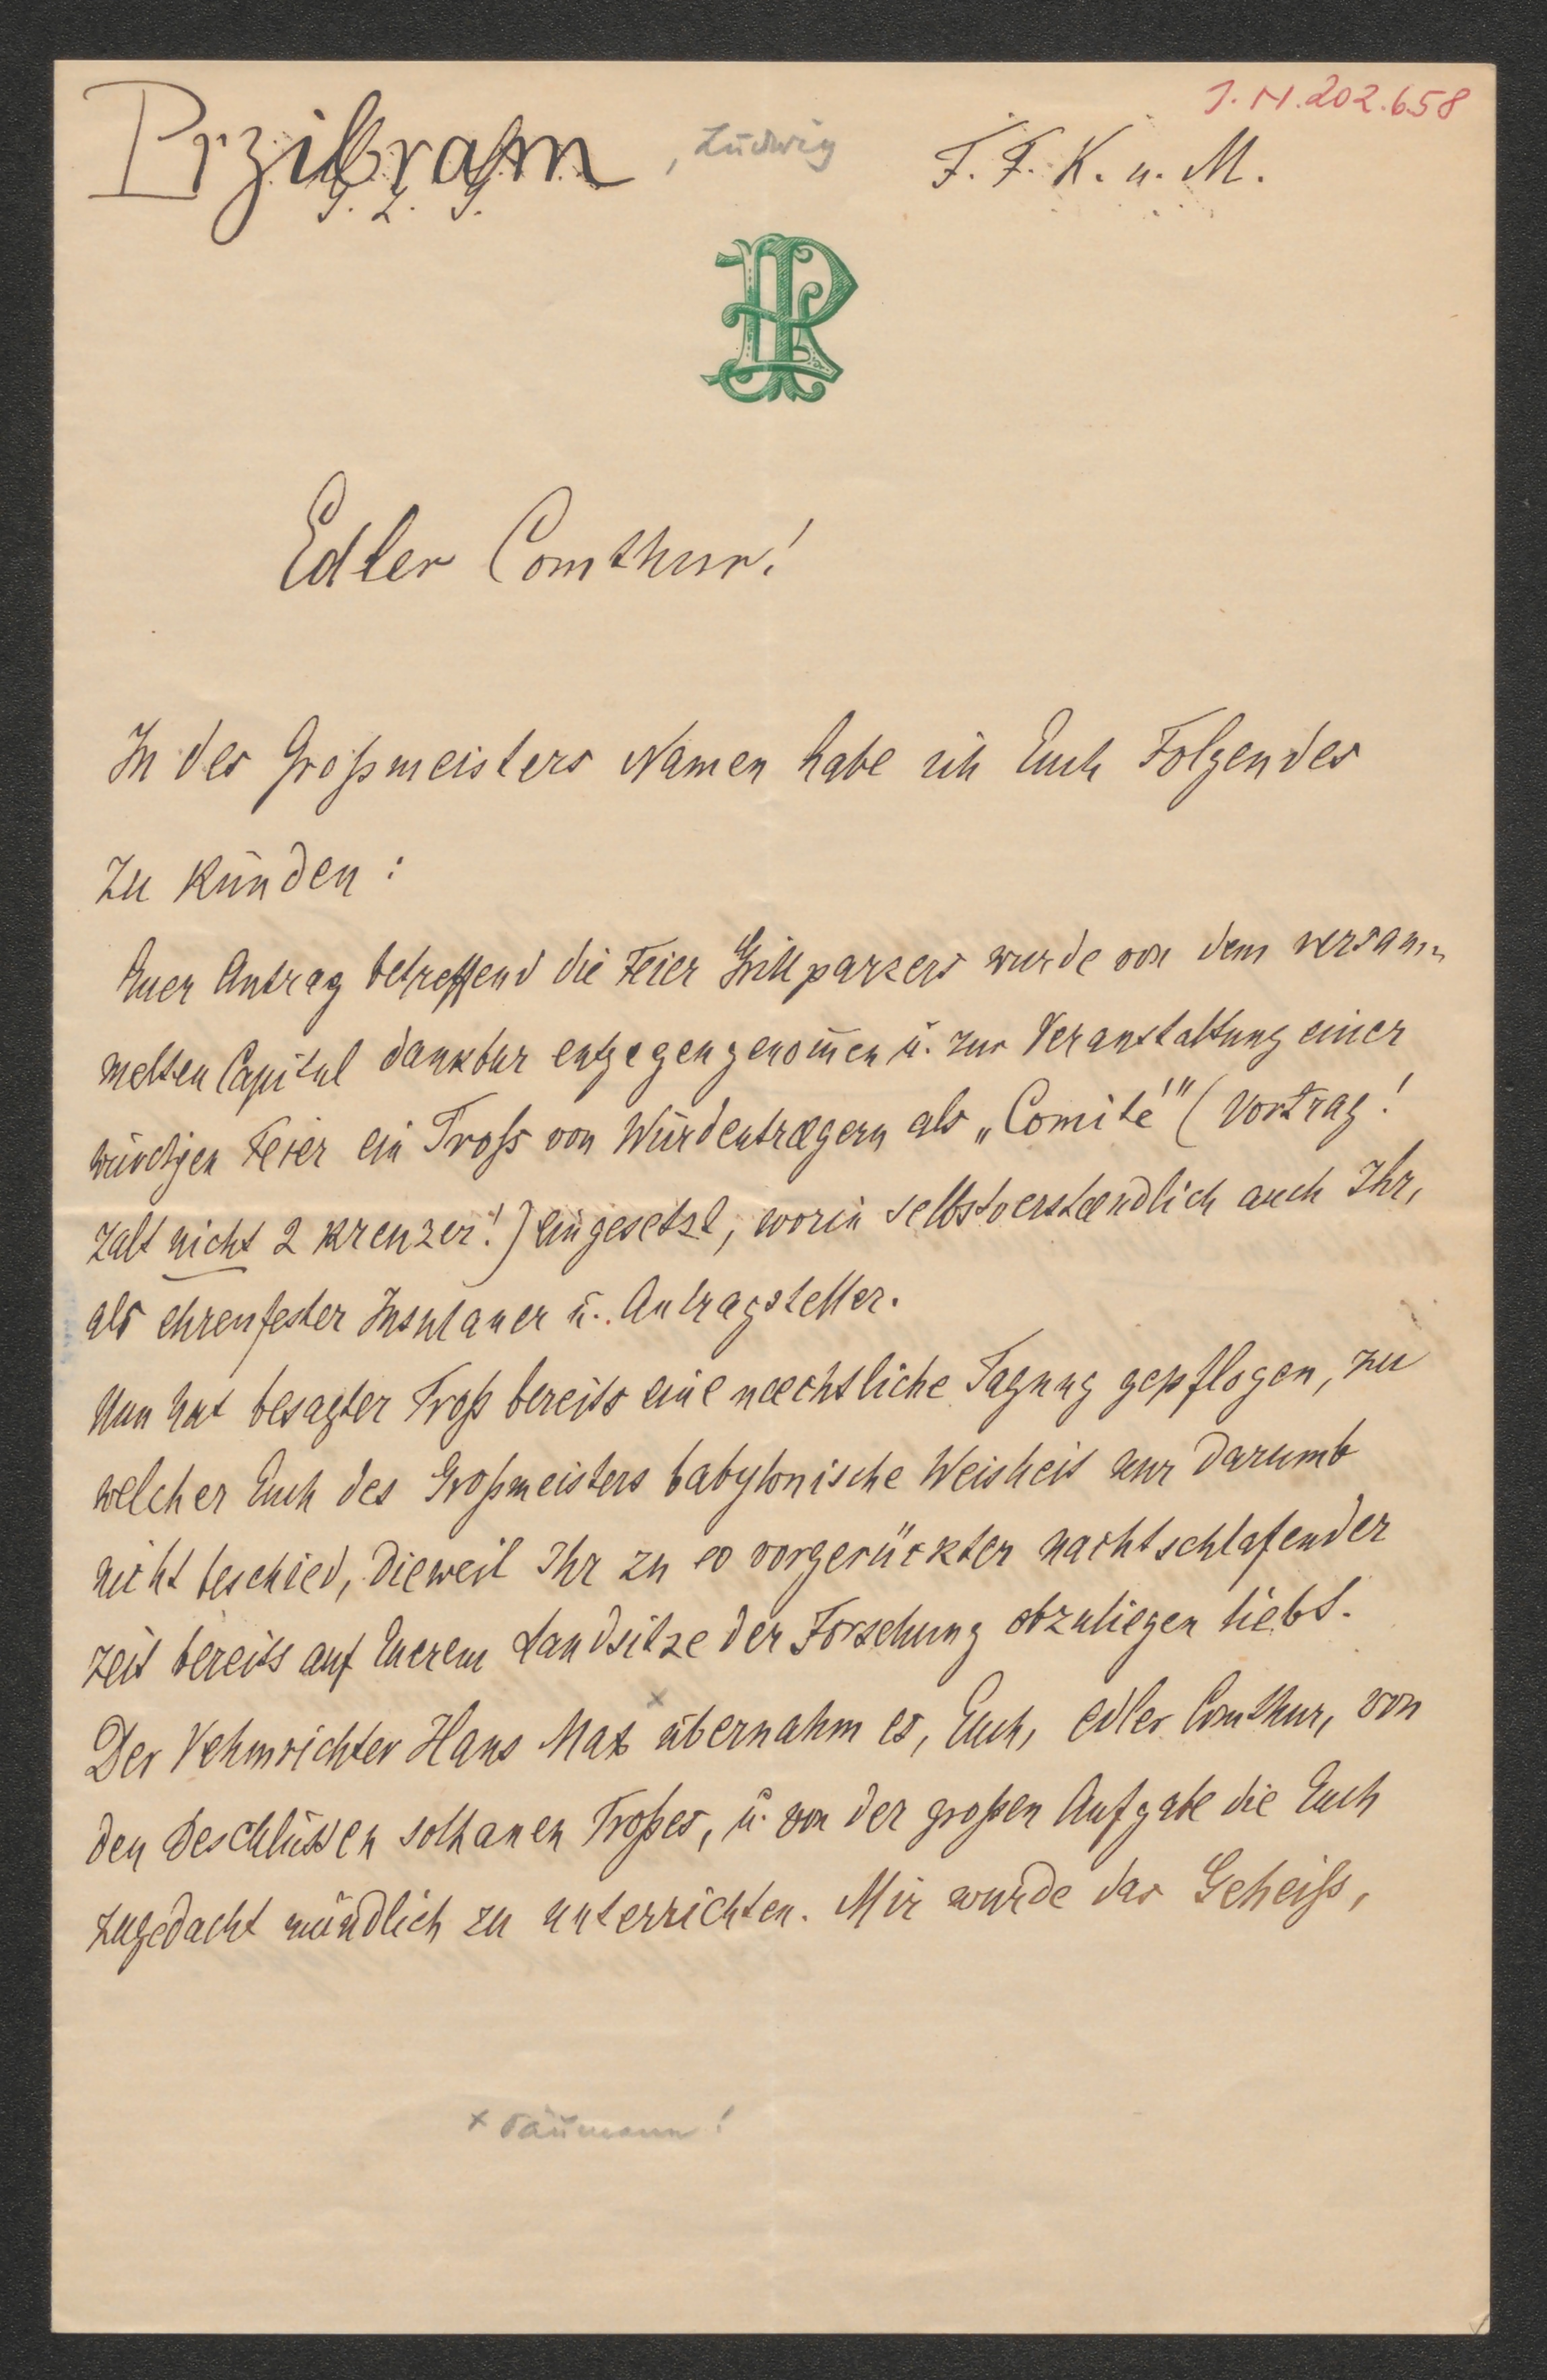 J.N. 202.658
Przibram, Ludwig
F. F. K. u. M.
Edler Comthur!
In des Großmeisters Namen habe ich Euch Folgendes
zu künden:
Euer Antrag betreffend die Feier Grillparzers wurde von dem versam-
melten Capitul dankbar entgegengenom̄en u. zur Veranstaltung einer
würdigen Feier ein Tross von Würdentraegern als „Comité" (Vortrag!
zalt nicht 2 Kreuzer!) eingesetzt, worin selbstverstaendlich auch Ihr,
als ehrenfester Insulaner u. Antragsteller.
Nun hat besagter Troß bereits eine naechtliche Tagung gepflogen, zu
welcher Euch des Großmeisters babylonische Weisheit nur darumb
nicht beschied, dieweil Ihr zu so vorgerückter nachtschlafender
Zeit bereits auf Euerem Landsitze der Forschung obzuliegen liebt.
Der Vehmrichter Hans Max x übernahm es, Euch, edler Comthur, von
den Beschlüssen sothanen Troßes, u. von der großen Aufgabe die Euch
zugedacht mündlich zu unterrichten. Mir wurde das Geheiss,
x Paumann!